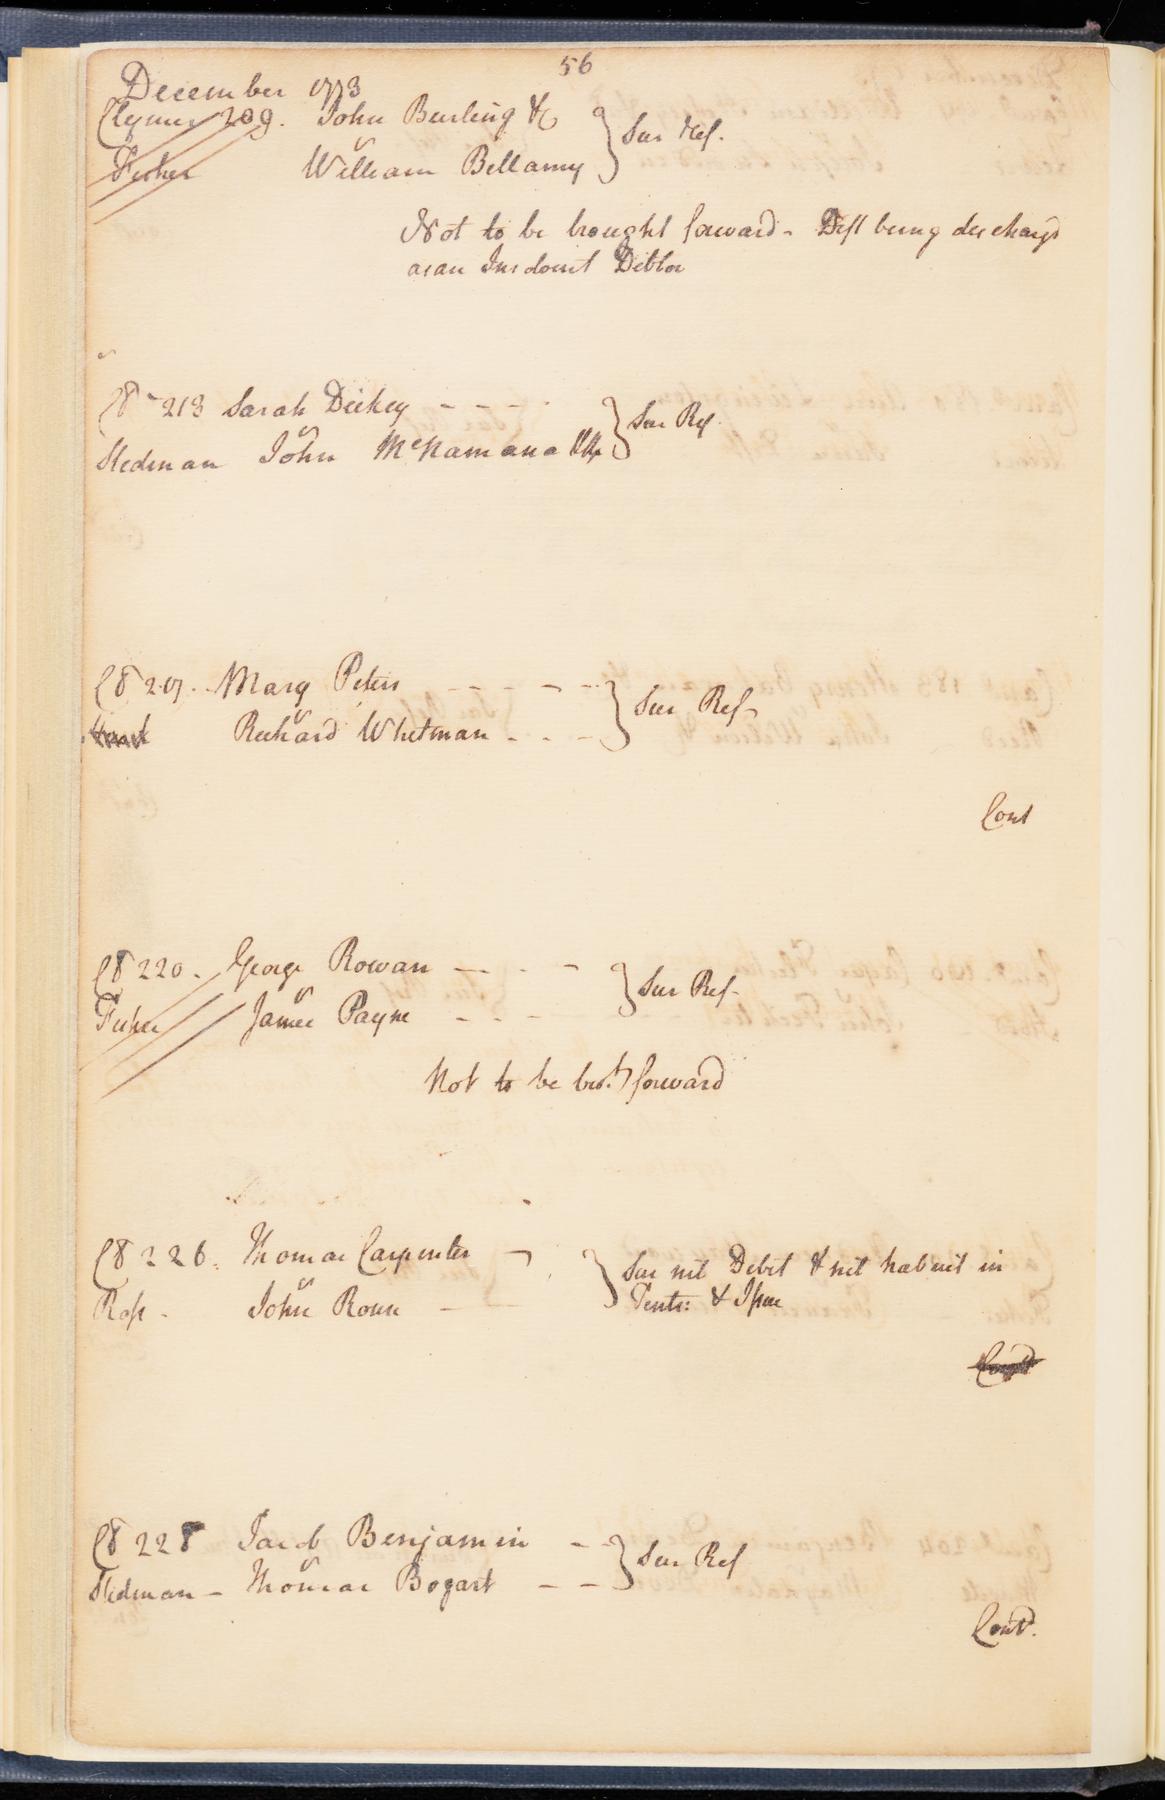 56
December 1773
Clymer 209. John Burling &c } Sur Ref.
v
Fisher William Bellamy
Not to be brought forward - Deft being dischargd
as an Insolvent Debtor
C8 213 Sarah Dickey - - - - } Sur Ref.
v
Stedman John McNamara
C8 217. Mary Peters - - - - - } Sur Ref
v
Richard Whitman - - -
Cont
C8 220. George Rowan - - - } Sur Ref.
v
Fisher James Payne - - -
Not to be brot. forward
C8 226. Thomas Carpenter } Sur nil Debit & nil habuit in
v
Ross - John Roun - Tents: & Issue
C8 228 Jacob Benjamin - - } Sur Ref
v
Stedman - Thomas Bogart - -
Contd.